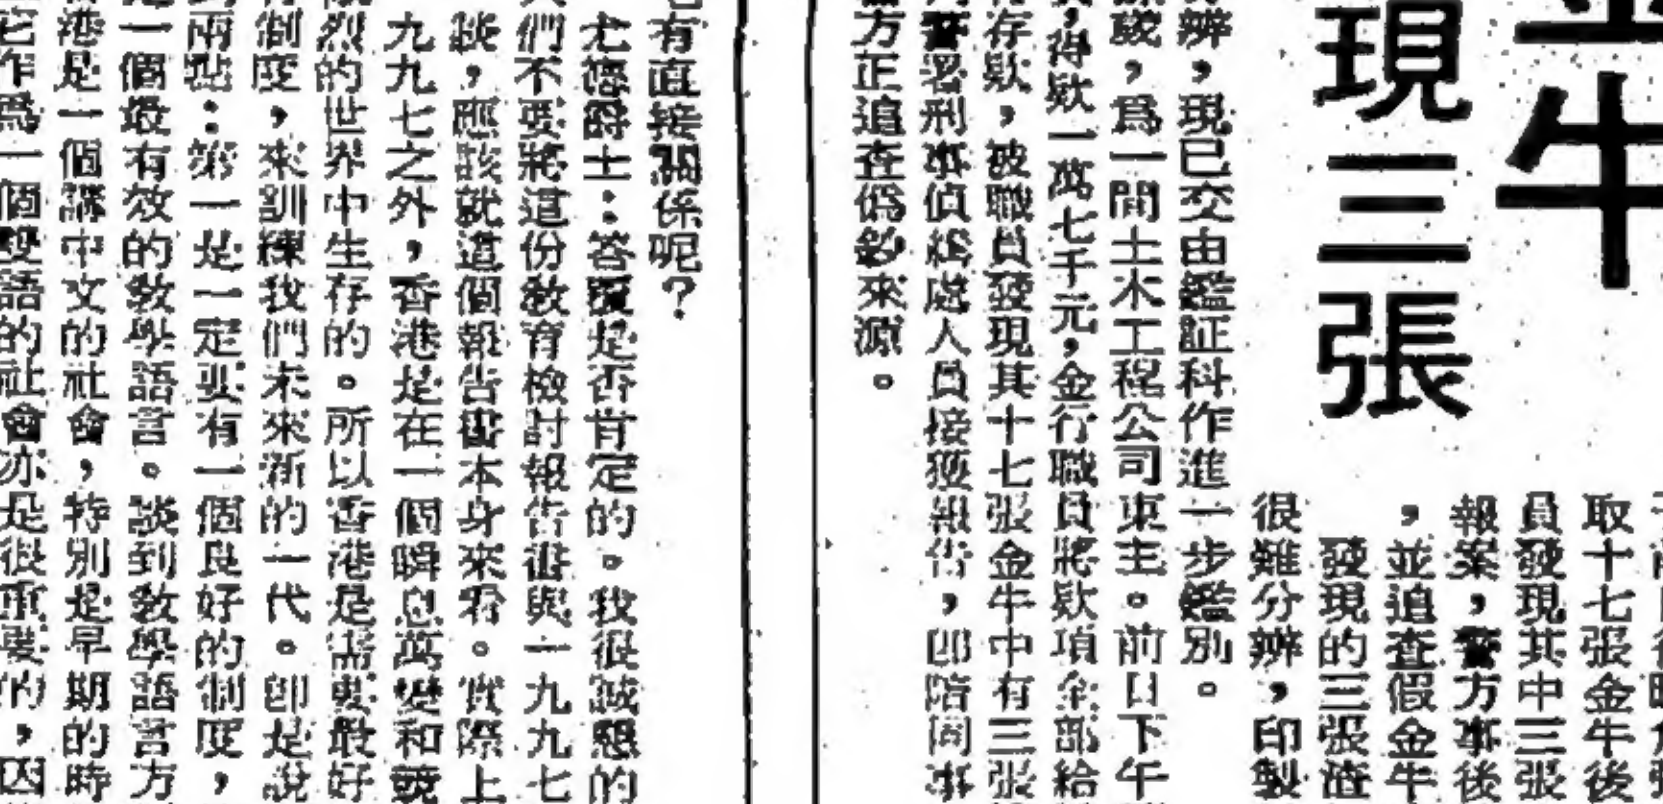 金牛
現三張
取十七張金牛後
員發現其中三張
報案，警方事後
，並追查假金牛
發現的三張渣
很難分辨，印製
辨，現已交由鑑証科作進一步鑑別。
歲，爲一間土木工程公司東主。前日下午
，得欵一萬七千元，金行職員將欵項全部給
存欵，被職員發現其十七張金牛中有三張
警署刑事偵緝處人員接獲報告，即陪同事
方正追查僞鈔來源。
有直接關係呢？
尤德爵士：答覆是否肯定的。我很誠懇的
們不要將這份敎育檢討報告書與一九九七
談，應該就這個報告書本身來看。實際上
九九七之外，香港是在一個瞬息萬變和競
烈的世界中生存的。所以香港是需要最好
制度，來訓練我們未來新的一代。即是說
兩點：第一是一定要有一個良好的制度，
一個最有效的敎學語言。談到敎學語言方
港是一個講中文的社會，特別是早期的時
它作爲一個雙語的社會亦是很重要的，因